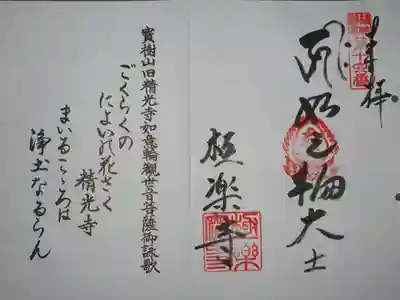 奉拝
如意輪大士
極楽寺
寳樹山旧精光寺如意輪觀世音菩薩御詠歌
ごくらくの
によいの花さく
精光寺
まいるこころは
浄土なるらん